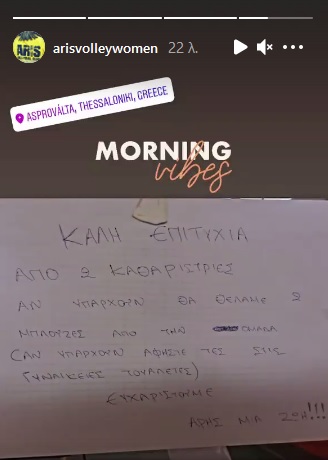 ARIS
arisvolleywomen 22 λ.
ASPROVÁLTA, THESSALONIKI, GREECE
MORNING
vibes
ΚΑΛΗ ΕΠΙΤΥΧΙΑ
ΑΠΟ 2 ΚΑΘΑΡΙΣΤΡΙΕΣ
ΑΝ ΥΠΑΡΧΟΥΝ ΘΑ ΘΕΛΑΜΕ 2
ΜΠΛΟΥΖΕΣ ΑΠΟ ΤΗΝ ΟΜΑΔΑ
(ΑΝ ΥΠΑΡΧΟΥΝ ΑΦΗΣΤΕ ΤΕΣ ΣΤΙΣ
ΓΥΝΑΙΚΕΙΕΣ ΤΟΥΑΛΕΤΕΣ)
ΕΥΧΑΡΙΣΤΟΥΜΕ
ΑΡΗΣ ΜΙΑ ΖΩΗ!!!